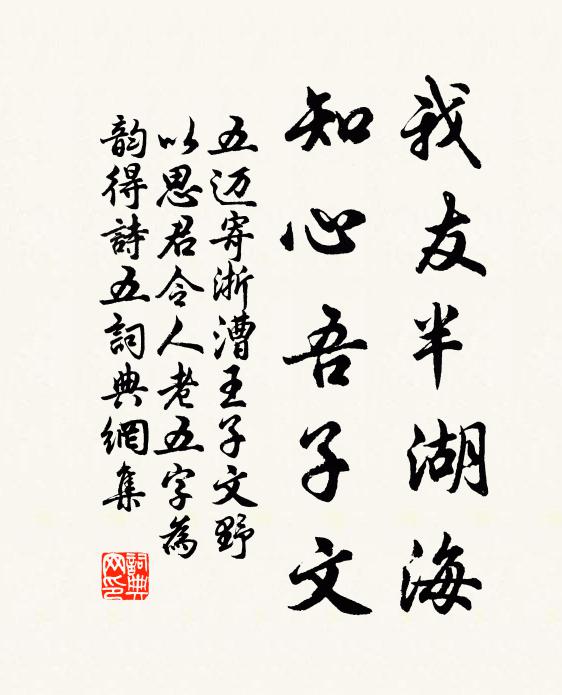 我友半湖海
知心吾子文
五迈寄浙漕王子文野
以思君令人老五字為
韵得詩五詞典網集
詞典
网印